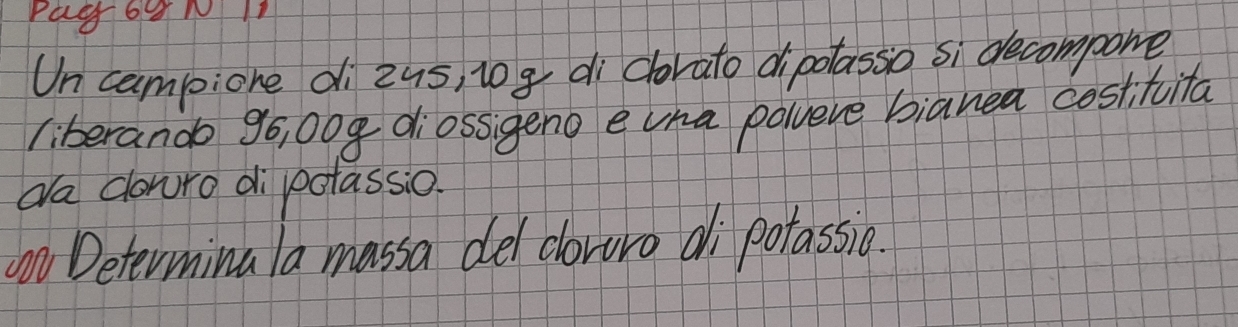 Pag 69 N 11
Un campione di 245,10g di clorato di potassio si decompone
liberando 96,00g di ossigeno e una polvere bianca costituita
da cloruro di potassio.
Determina la massa del cloruro di potassio.